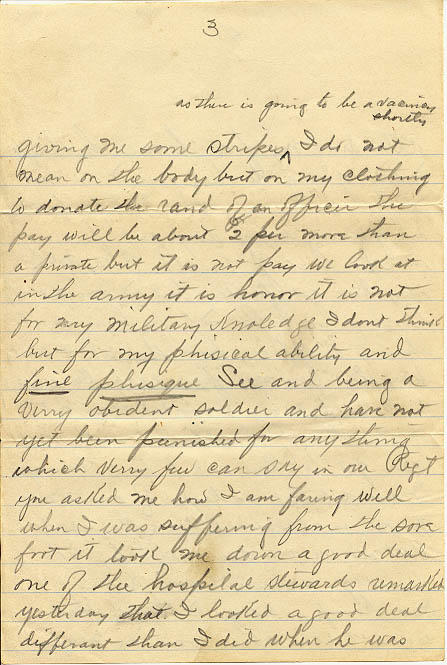 3
as there is going to be a vacincy
shortly
giving me some stripes ^ I do not
mean on the body but on my clothing
to donate the rand of an officer the
pay will be about 2 per more than
a private but it is not pay we look at
in the army it is honor it is not
for my military Knoledge I dont think
but for my phisical ability and
fine phisique See and being a
verry obident soldier and have not
yet been punished for any thing
which verry few can say in our Regt
you asked me how I am faring well
when I was suffering from the sore
foot it look me down a good deal
one of the hospital stewards remarked
yesterday that I looked a good deal
differant than I did when he was